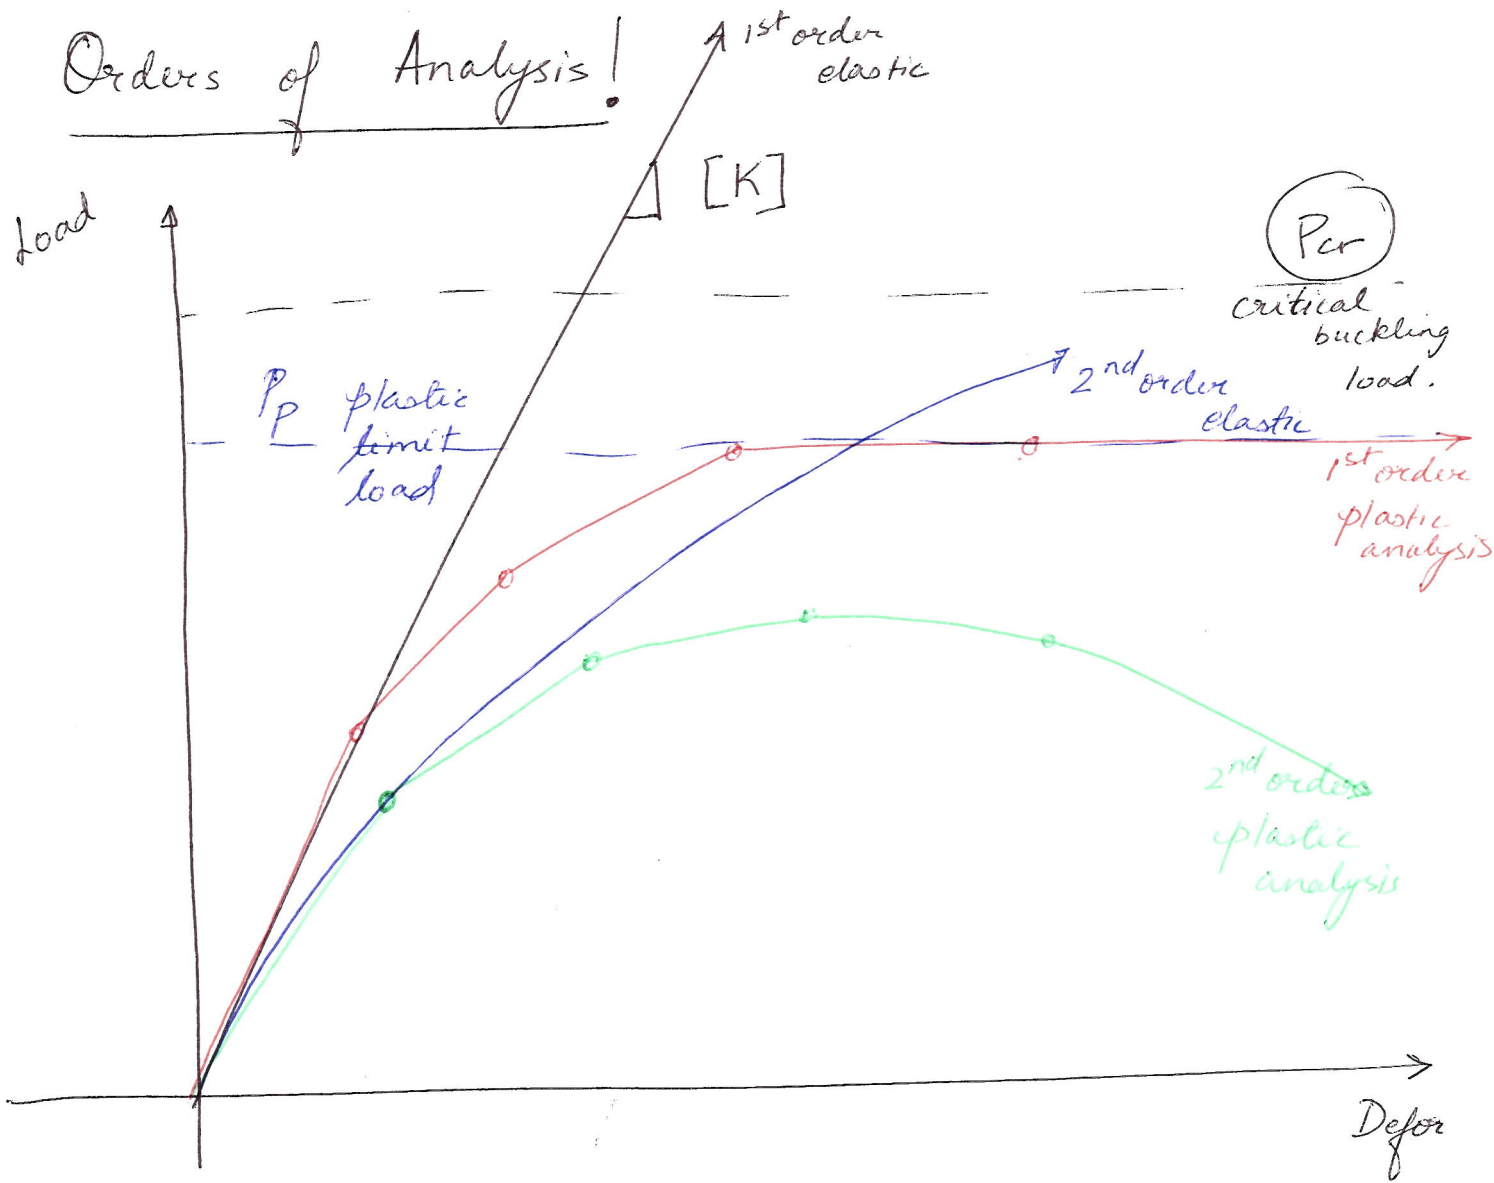 Orders of Analysis!
1st order
elastic
[K]
Load
Pcr
critical
buckling
load.
Pp plastic
limit
load
2nd order
elastic
1st order
plastic
analysis
2nd order
plastic
analysis
Defor